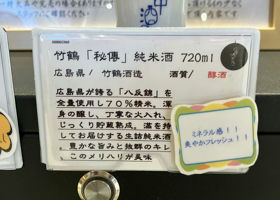 竹鶴「秘傳」純米酒 720ml
広島県/ 竹鶴酒造 酒質/ 醇酒
広島県が誇る「八反錦」を
全量使用し70%精米。渾
身の醸し、丁寧な火入れ、
じっくり貯蔵熟成。満を持
してお届けする生詰純米酒
。豊かな旨みと抜群のキレ
、このメリハリが美味
ミネラル感!!
爽やかフレッシュ!!